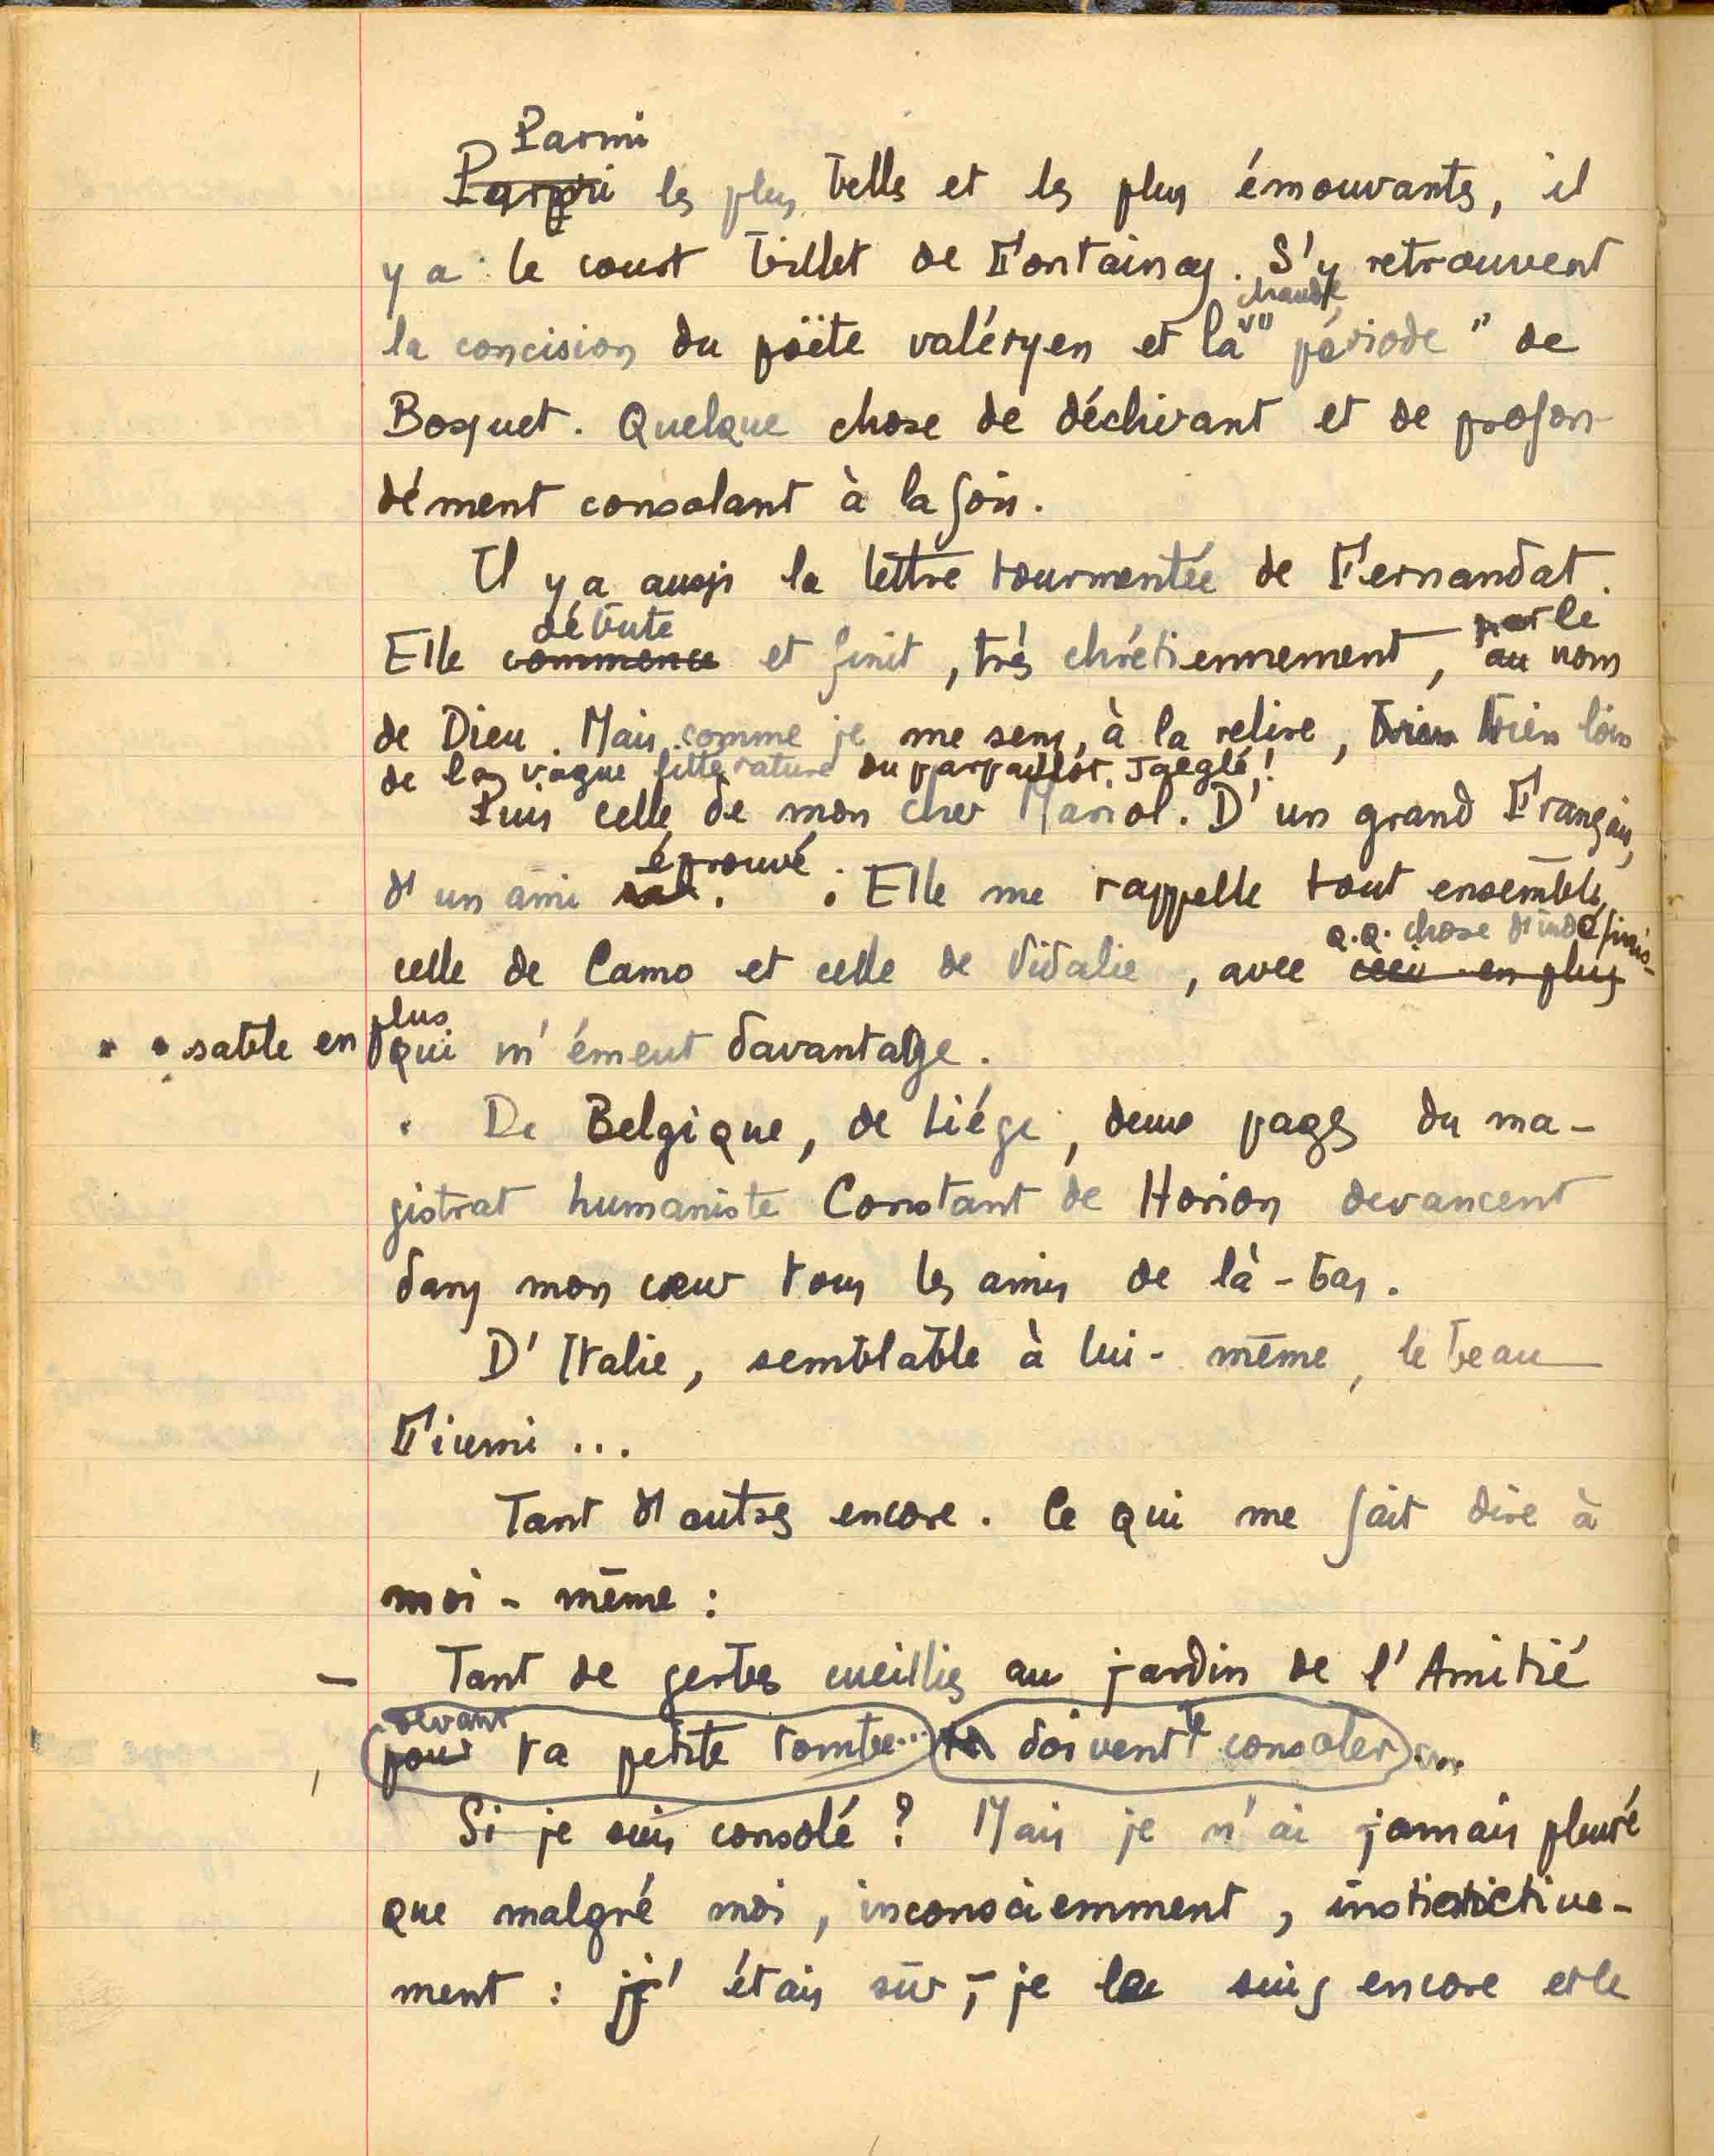 Parmi
Parmi les plus belles et les plus émouvantes, il
y a le court billet de Fontainas. S'y retrouvent
chaude
la concision du poëte valéryen et la " période " de
Bosquet. Quelque chose de déchirant et de profon
dément consolant à la fois.
Il y a aussi la lettre tourmentée de Fernandat.
débute par le
Elle commence et finit, très chrétiennement, au nom
de Dieu. Mais comme je me sens, à la relire, bien bien loin
de la vague littérature du parpaillot Jaeglé !
Puis celle de mon cher Mariol. D'un grand Français,
éprouvé
d'un ami . Elle me rappelle tout ensemble
q.q. chose d'indéfinis-
celle de Camo et celle de Vidalie, avec ceci en plus
plus
sable en qui m'émeut davantage.
De Belgique, de Liége, deux pages du ma-
gistrat humaniste Constant de Horion devancent
dans mon cœur tous les amis de là-bas.
D'Italie, semblable à lui-même, le beau
Fiumi ...
Tant d'autres encore. Ce qui me fait dire à
moi-même :
– Tant de gerbes cueillies au jardin de l'Amitié
devant te
pour ta petite tombe... doivent consoler ...
Si je suis consolé ? Mais je n'ai jamais pleuré
que malgré moi, inconsciemment, instinctive-
ment : j'étais sûr, – je le suis encore et le